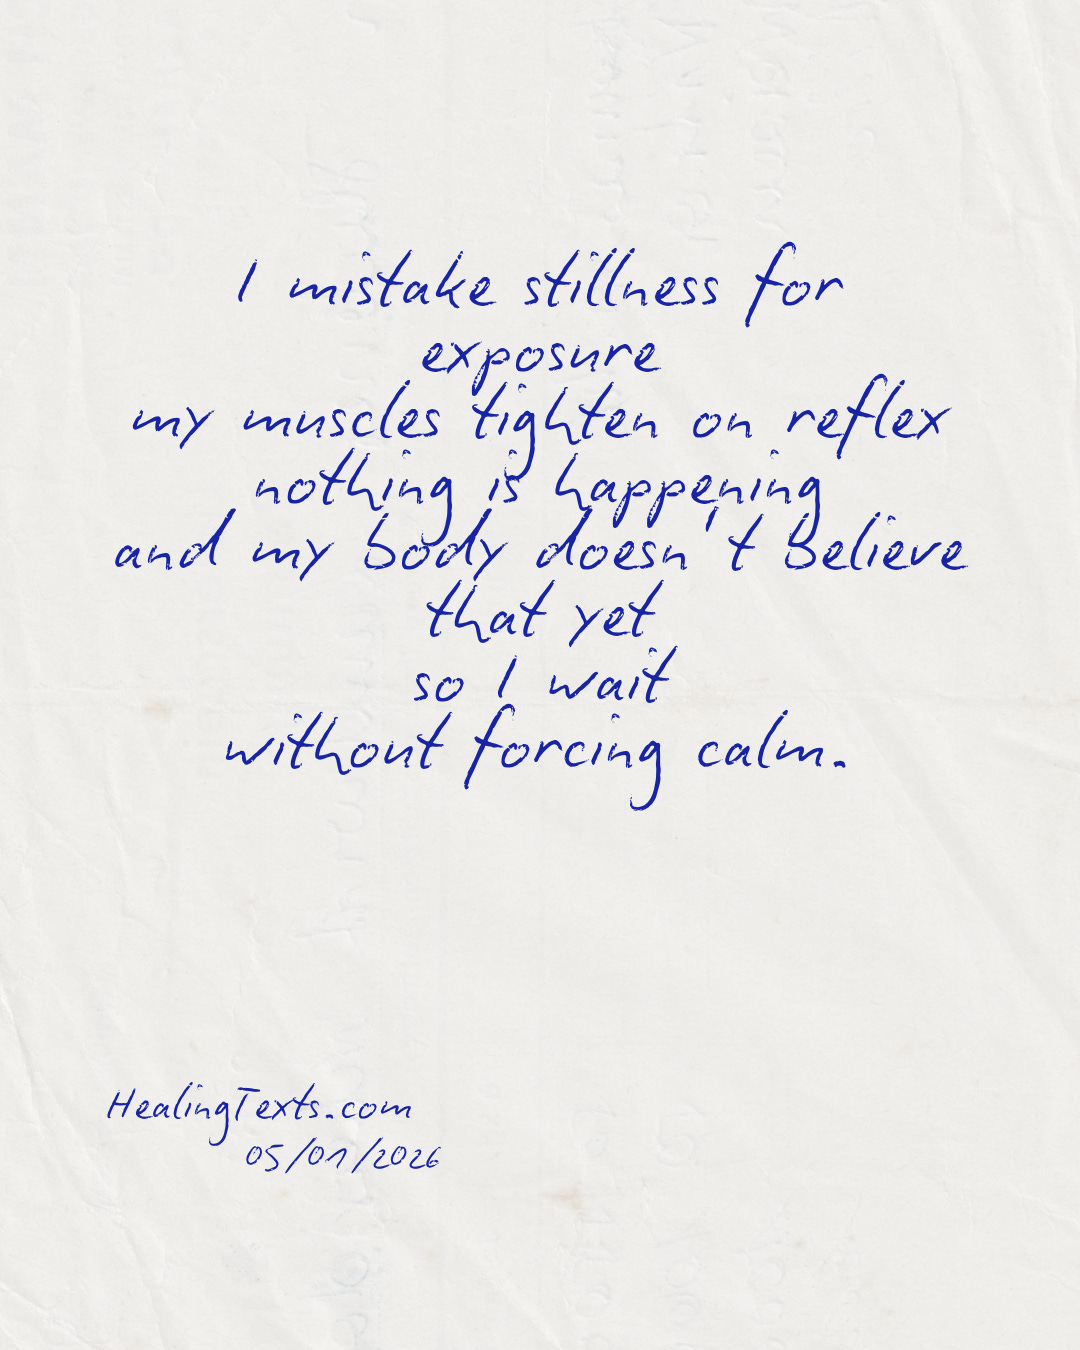 I mistake stillness for
exposure
my muscles tighten on reflex
nothing is happening
and my body doesn't believe
that yet
so I wait
without forcing calm.
HealingTexts.com
05/01/2026